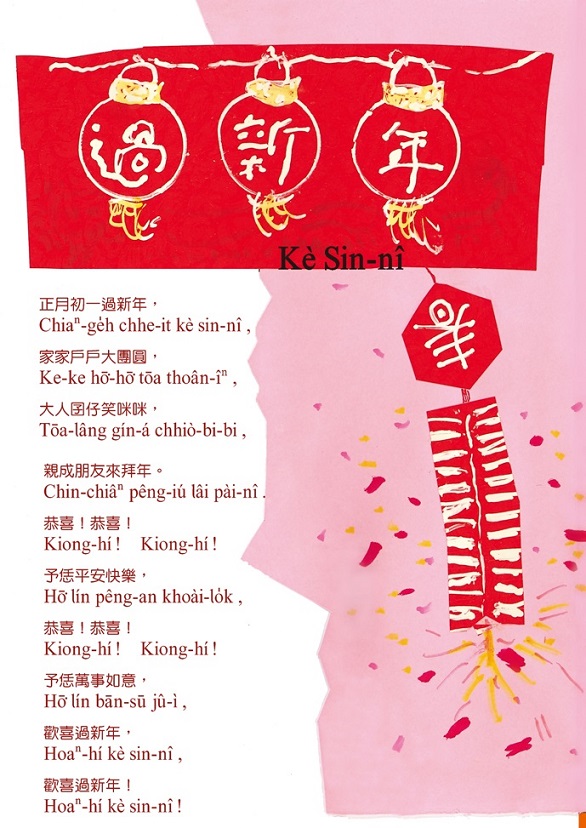 過新年
Kè Sin-nî
春
正月初一過新年，
Chiaⁿ-ge̍h chhe-it kè sin-nî ,
家家戶戶大團圓，
Ke-ke hō͘-hō͘ tōa thoân-îⁿ ,
大人囝仔笑咪咪，
Tōa-lâng gín-á chhiò-bi-bi ,
親成朋友來拜年。
Chin-chiâⁿ pêng-iú lâi pài-nî .
恭喜！恭喜！
Kiong-hí !　Kiong-hí !
予恁平安快樂，
Hō͘ lín pêng-an khoài-lo̍k ,
恭喜！恭喜！
Kiong-hí !　Kiong-hí !
予恁萬事如意，
Hō͘ lín bān-sū jû-ì ,
歡喜過新年，
Hoaⁿ-hí kè sin-nî ,
歡喜過新年！
Hoaⁿ-hí kè sin-nî !